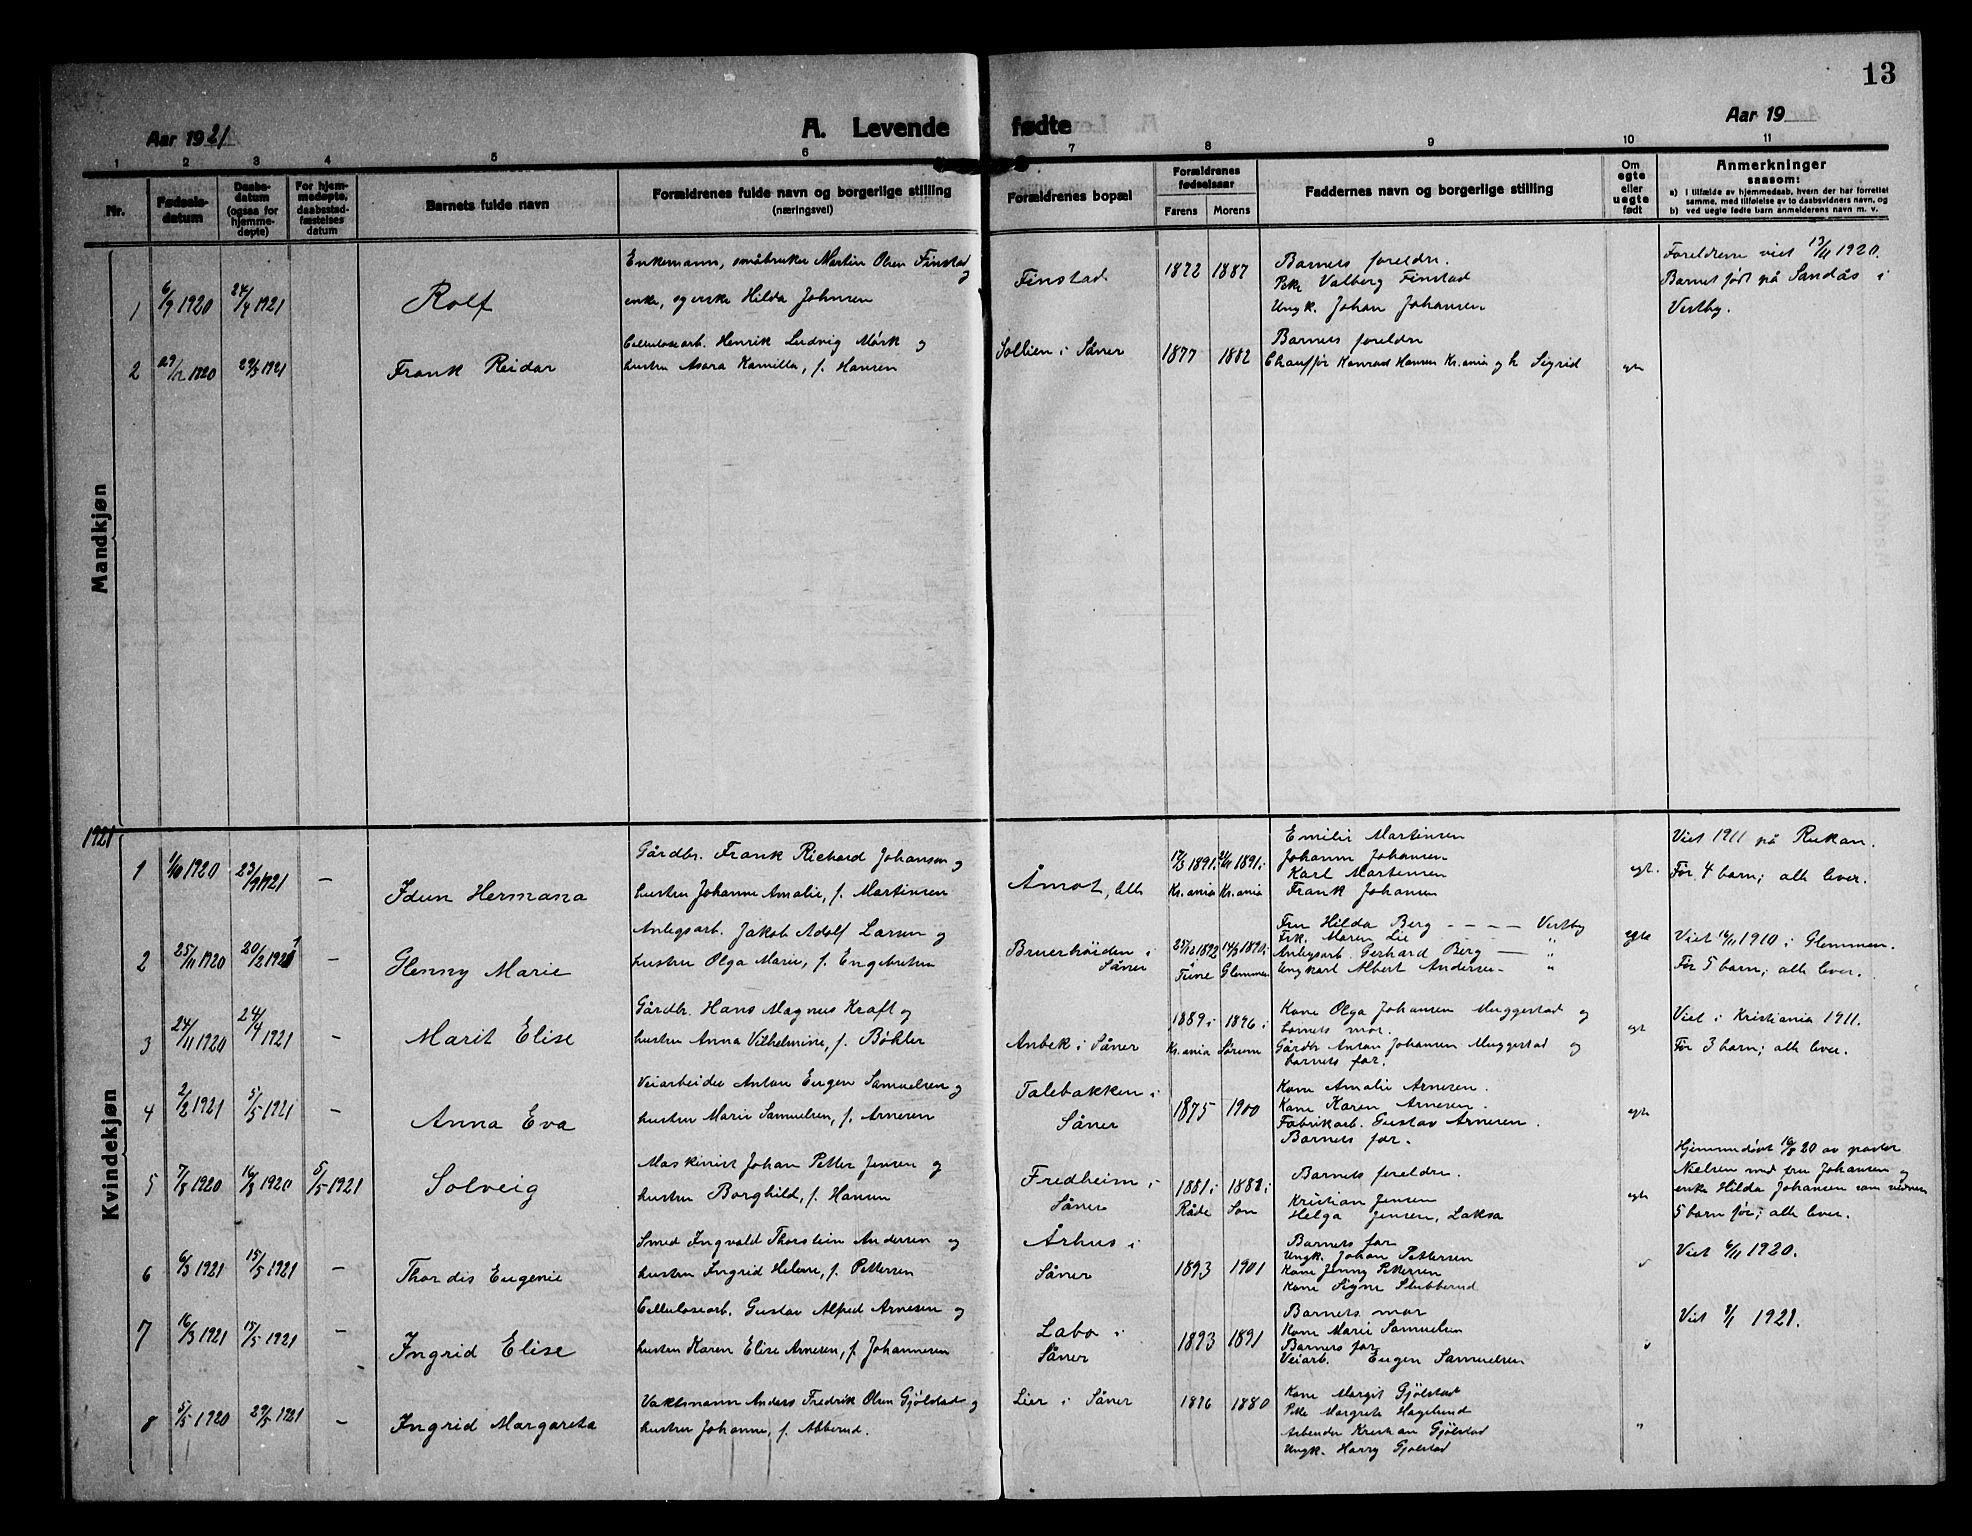 13
Aar 1921
A. Levende fødte
Aar 19
1 2 3 4 5 6 7 8 9 10 11
Nr.
Fødselsdatum
Daabsdatum (ogsaa for hjemmedøpte)
For hjemmedøpte, daabsstadfæstelses datum
Barnets fulde navn
Forældrenes fulde navn og borgerlige stilling (næringsvei)
Forældrenes bopæl
Forældrenes fødselsaar
Farens Morens
Faddernes navn og borgerlige stilling
Om egte eller uegte født
Anmerkninger
saasom:
a) I tilfælde av hjemmedaab, hvem der har forrettet samme, med tilføielse av to daabsvidners navn, og
b) ved uegte fødte barn anmelderens navn m. v.
Mandkjøn
1 6/9 1920 24/4 1921 Rolf
Enkemann, småbruker Martin Olsen Finstad og
enke, og erske Hilda Johnsen
Finstad 1872 1887
Barnets foreldre.
Pike Valborg Finstad
Ungk. Johan Johansen
Foreldrene viet 13/11 1920.
Barnet født på Sandås i
Vestby.
2 29/12 1920 29/5 1921 Frank Reidar
Cellulosearb. Henrik Ludvig Mørk og
hustru Asora Kamilla, f. Hansen
Sollien i Såner 1877 1882
Barnets foreldre
Chauffør Konrad Hansen Kr.ania og h Sigrid
egte
1921
Kvindekjøn
1 1/10 1920 23/1 1921 – Idun Hermana
Gårdbr. Frank Richard Johansen og
hustru Johanne Amalie, f. Martinsen
Åmot,
17/3 1891 i Kr.ania 2/11 1891 i Kr.ania
Emilie Martinsen
Johann Johansen
Karl Martinsen
Frank Johansen
egt.
Viet 1911 på Rukan.
Før 4 barn; alle lever.
2 25/11 1920 20/2 1921 – Glenny Marie
Anlegsarb. Jakob Adolf Larsen og
hustru Olga Marie, f. Engebretsen
Bruerhøiden i
Såner
1892 1890 i
Glemmen
Fru Hilda Berg – – – – Vestby
Frk. Maren Lie "
Anlegsarb. Gerhard Berg — "
Ungkarl Albert Andersen – "
egte
Viet 1910 i Glemmen.
Før 5 barn; alle lever.
3 24/11 1920 24/4 1921 – Marit Elise
Gårdbr. Hans Magnus Kraft og
hustru Anna Vilhelmine, f. Bøhler
Anbek i Såner
1889 i Kr.ania 1896 i Sørum
Kone Olga Johansen Muggestad og
barnets mor.
Gårdbr Anton Johansen Muggestad og
barnets far.
egt
Viet i Kristiania 1911.
Før 3 barn; alle lever.
4 2/2 1921 5/5 1921 – Anna Eva
Veiarbeider Anton Eugen Samuelsen og
hustru Marie Samuelsen, f. Arnesen
Talebakken i
Såner
1875 1900
Kone Amalie Arnesen.
Kone Karen Arnesen.
Fabrikarb. Gustav Arnesen.
Barnets far.
egte
5 7/8 1920 16/8 1920 5/5 1921 Solveig
Maskinist Johan Petter Jensen og
hustru Borghild, f. Hansen
Fredheim i
Såner
1881 i Råde 1882 i Son
Barnets foreldre.
Kristian Jensen
Helga Jensen, Laksa
egte
Hjemmedøpt 16/8 20 av pastor
Nielsen med fru Johansen og
enke Hilda Johansen som vidner
5 barn før; alle lever.
6 6/3 1921 15/5 1921 – Thordis Eugenie
Smed Ingvald Thorstein Andersen og
hustru Ingrid Helene, f. Pettersen
Århus i
Såner
1893 1901
Barnets far
Ungk. Johan Pettersen
Kone Jenny Pettersen
Kone Signe Stubberud
Viet 6/11 1920.
7 16/3 1921 15/5 1921 – Ingrid Elise
Cellulosearb. Gustav Alfred Arnesen og
hustru Karen Elise Arnesen, f. Johannesen
Labo i
Såner
1893 1891
Barnets mor
Kone Marie Samuelsen
Barnets far
Veiarb. Eugen Samuelsen
Viet 8/1 1921.
8 5/5 1920 29/5 1921 – Ingrid Margareta
Vaktmann Anders Fredrik Olsen Gjølstad og
hustru Johanne, f. Abberud.
Lier i Såner 1876 1880
Kone Margit Gjølstad
Pike Margrete Hagelund
Arbeider Kristian Gjølstad
Ungk. Harry Gjølstad
"